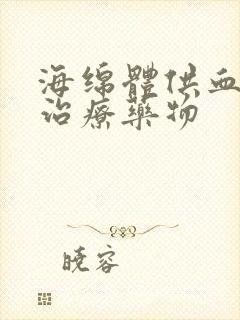 海绵體供血
治療藥物
曉容